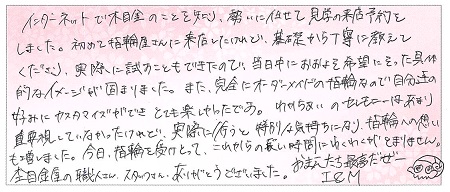 インターネットで杢目金のことを知り、勢いに任せて見学の来店予約を
しました。初めて指輪屋さんに来店したけれど、基礎から丁寧に教えて
くださり、実際に試すこともできたので、当日中におおよそ希望にそった具体
的なイメージが固まりました。また、完全にオーダーメイドの指輪なので自分達の
好みにカスタマイズができとても楽しかったです。わからないのセレモニーはあまり
重要視していなかったけれど、実際に行うと特別な気持ちになり、指輪への想い
も増しました。今日、指輪を受けとって、これからの長い時間にわくわくがとまりません。
杢目金屋の職人さん、スタッフさん、ありがとうございました。
おまえたち最高だぜー
I&M